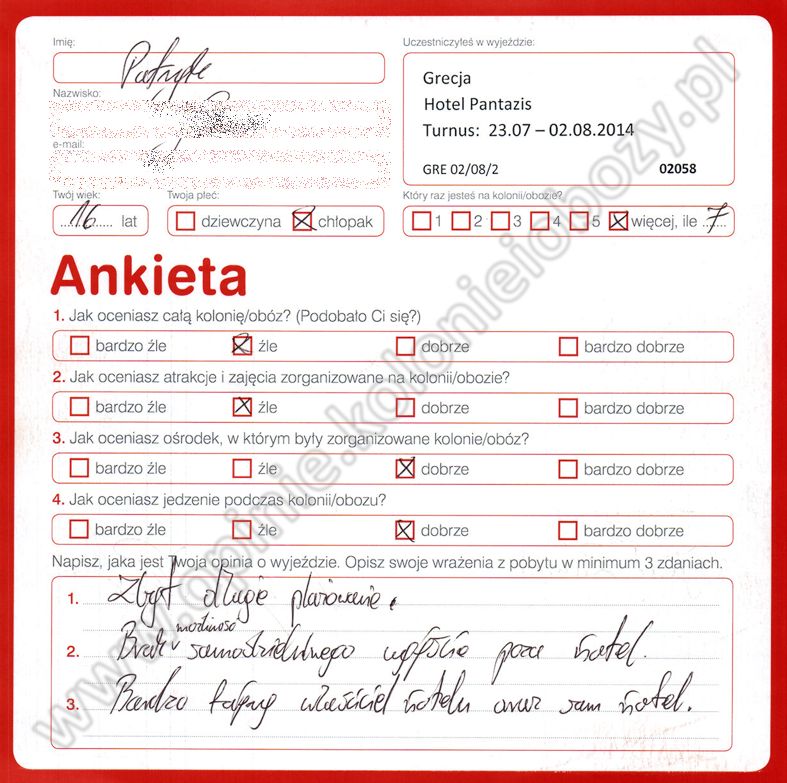 Imię:
Patryk
Nazwisko:
e-mail:
Uczestniczyłeś w wyjeździe:
Grecja
Hotel Pantazis
Turnus: 23.07 – 02.08.2014
GRE 02/08/2 02058
Twój wiek:
16 lat
Twoja płeć:
dziewczyna chłopak
Który raz jesteś na kolonii/obozie?
1 2 3 4 5 więcej, ile 7
Ankieta
1. Jak oceniasz całą kolonię/obóz? (Podobało Ci się?)
bardzo źle źle dobrze bardzo dobrze
2. Jak oceniasz atrakcje i zajęcia zorganizowane na kolonii/obozie?
bardzo źle źle dobrze bardzo dobrze
3. Jak oceniasz ośrodek, w którym były zorganizowane kolonie/obóz?
bardzo źle źle dobrze bardzo dobrze
4. Jak oceniasz jedzenie podczas kolonii/obozu?
bardzo źle źle dobrze bardzo dobrze
Napisz, jaka jest Twoja opinia o wyjeździe. Opisz swoje wrażenia z pobytu w minimum 3 zdaniach.
1. Zbyt długie plażowanie.
2. Brak możliwość samodzielnego wyjścia poza hotel.
3. Bardzo fajny właściciel hotelu oraz sam hotel.
www.opinie.kolonieiobozy.pl